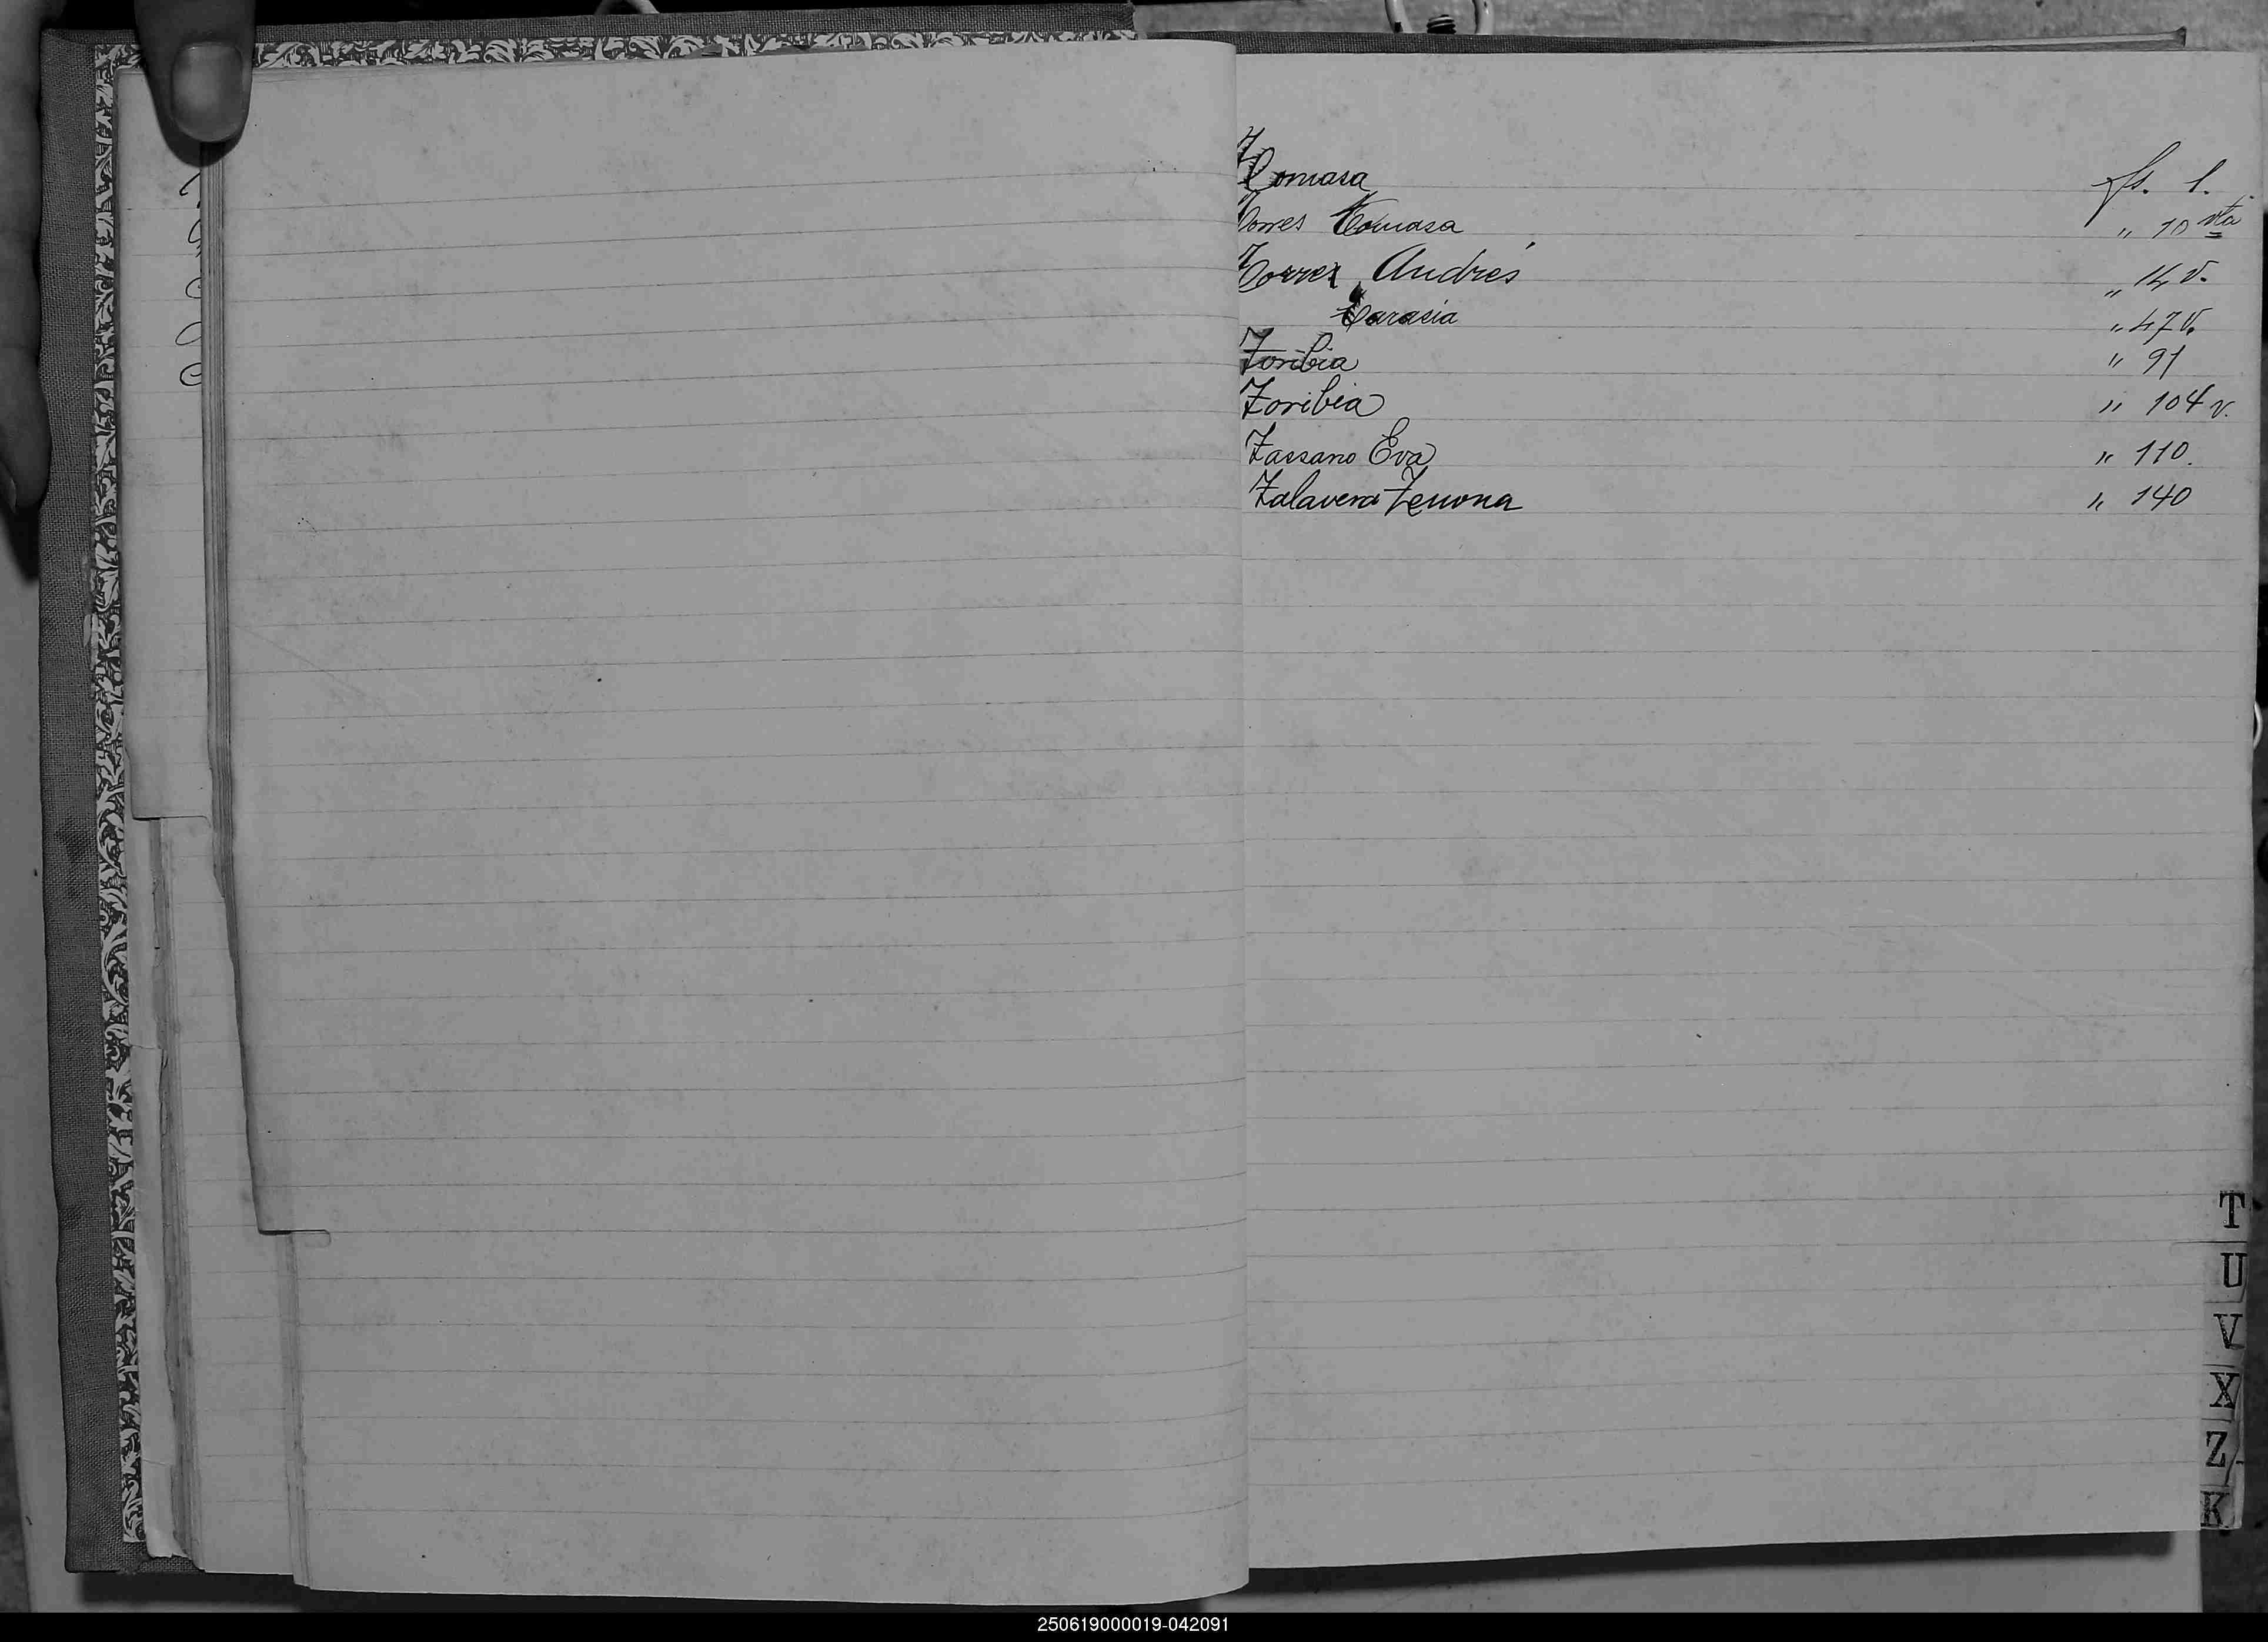 Tomasa fs. 1.
Torres Tomasa " 10 vta
Torres, Andrés " 14 v.
Tarasia " 47 v.
Toribia " 91
Toribia " 104 v.
Tassano Eva " 110.
Talavera Zenona " 140
T
U
V
X
Z
K
250619000019-042091